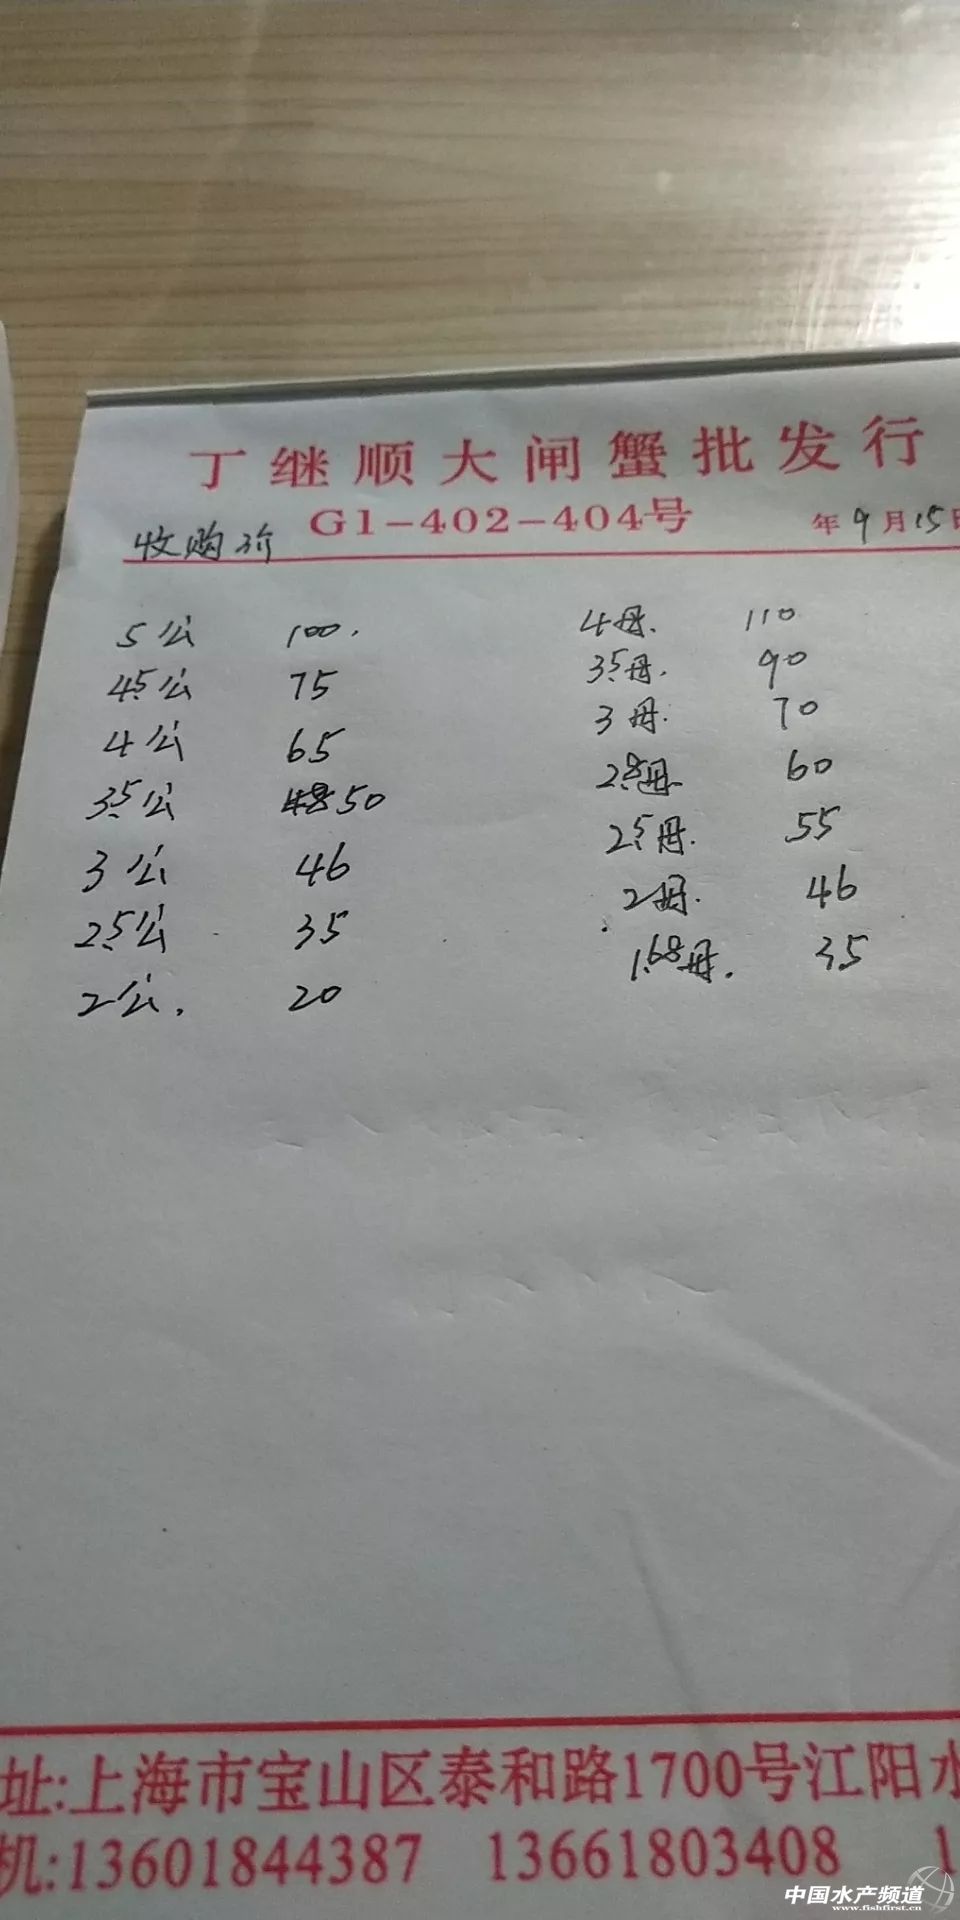 丁继顺大闸蟹批发行
收购价 G1-402-404号 年9月15日
5公 100.
4.5公 75
4公 65
3.5公 50
3公 46
2.5公 35
2公. 20
4母. 110
3.5母. 90
3母. 70
2.8母. 60
2.5母. 55
2母. 46
1.68母. 35
址:上海市宝山区泰和路1700号江阳水
机:13601844387 13661803408 1
中国水产频道
www.fishfirst.cn